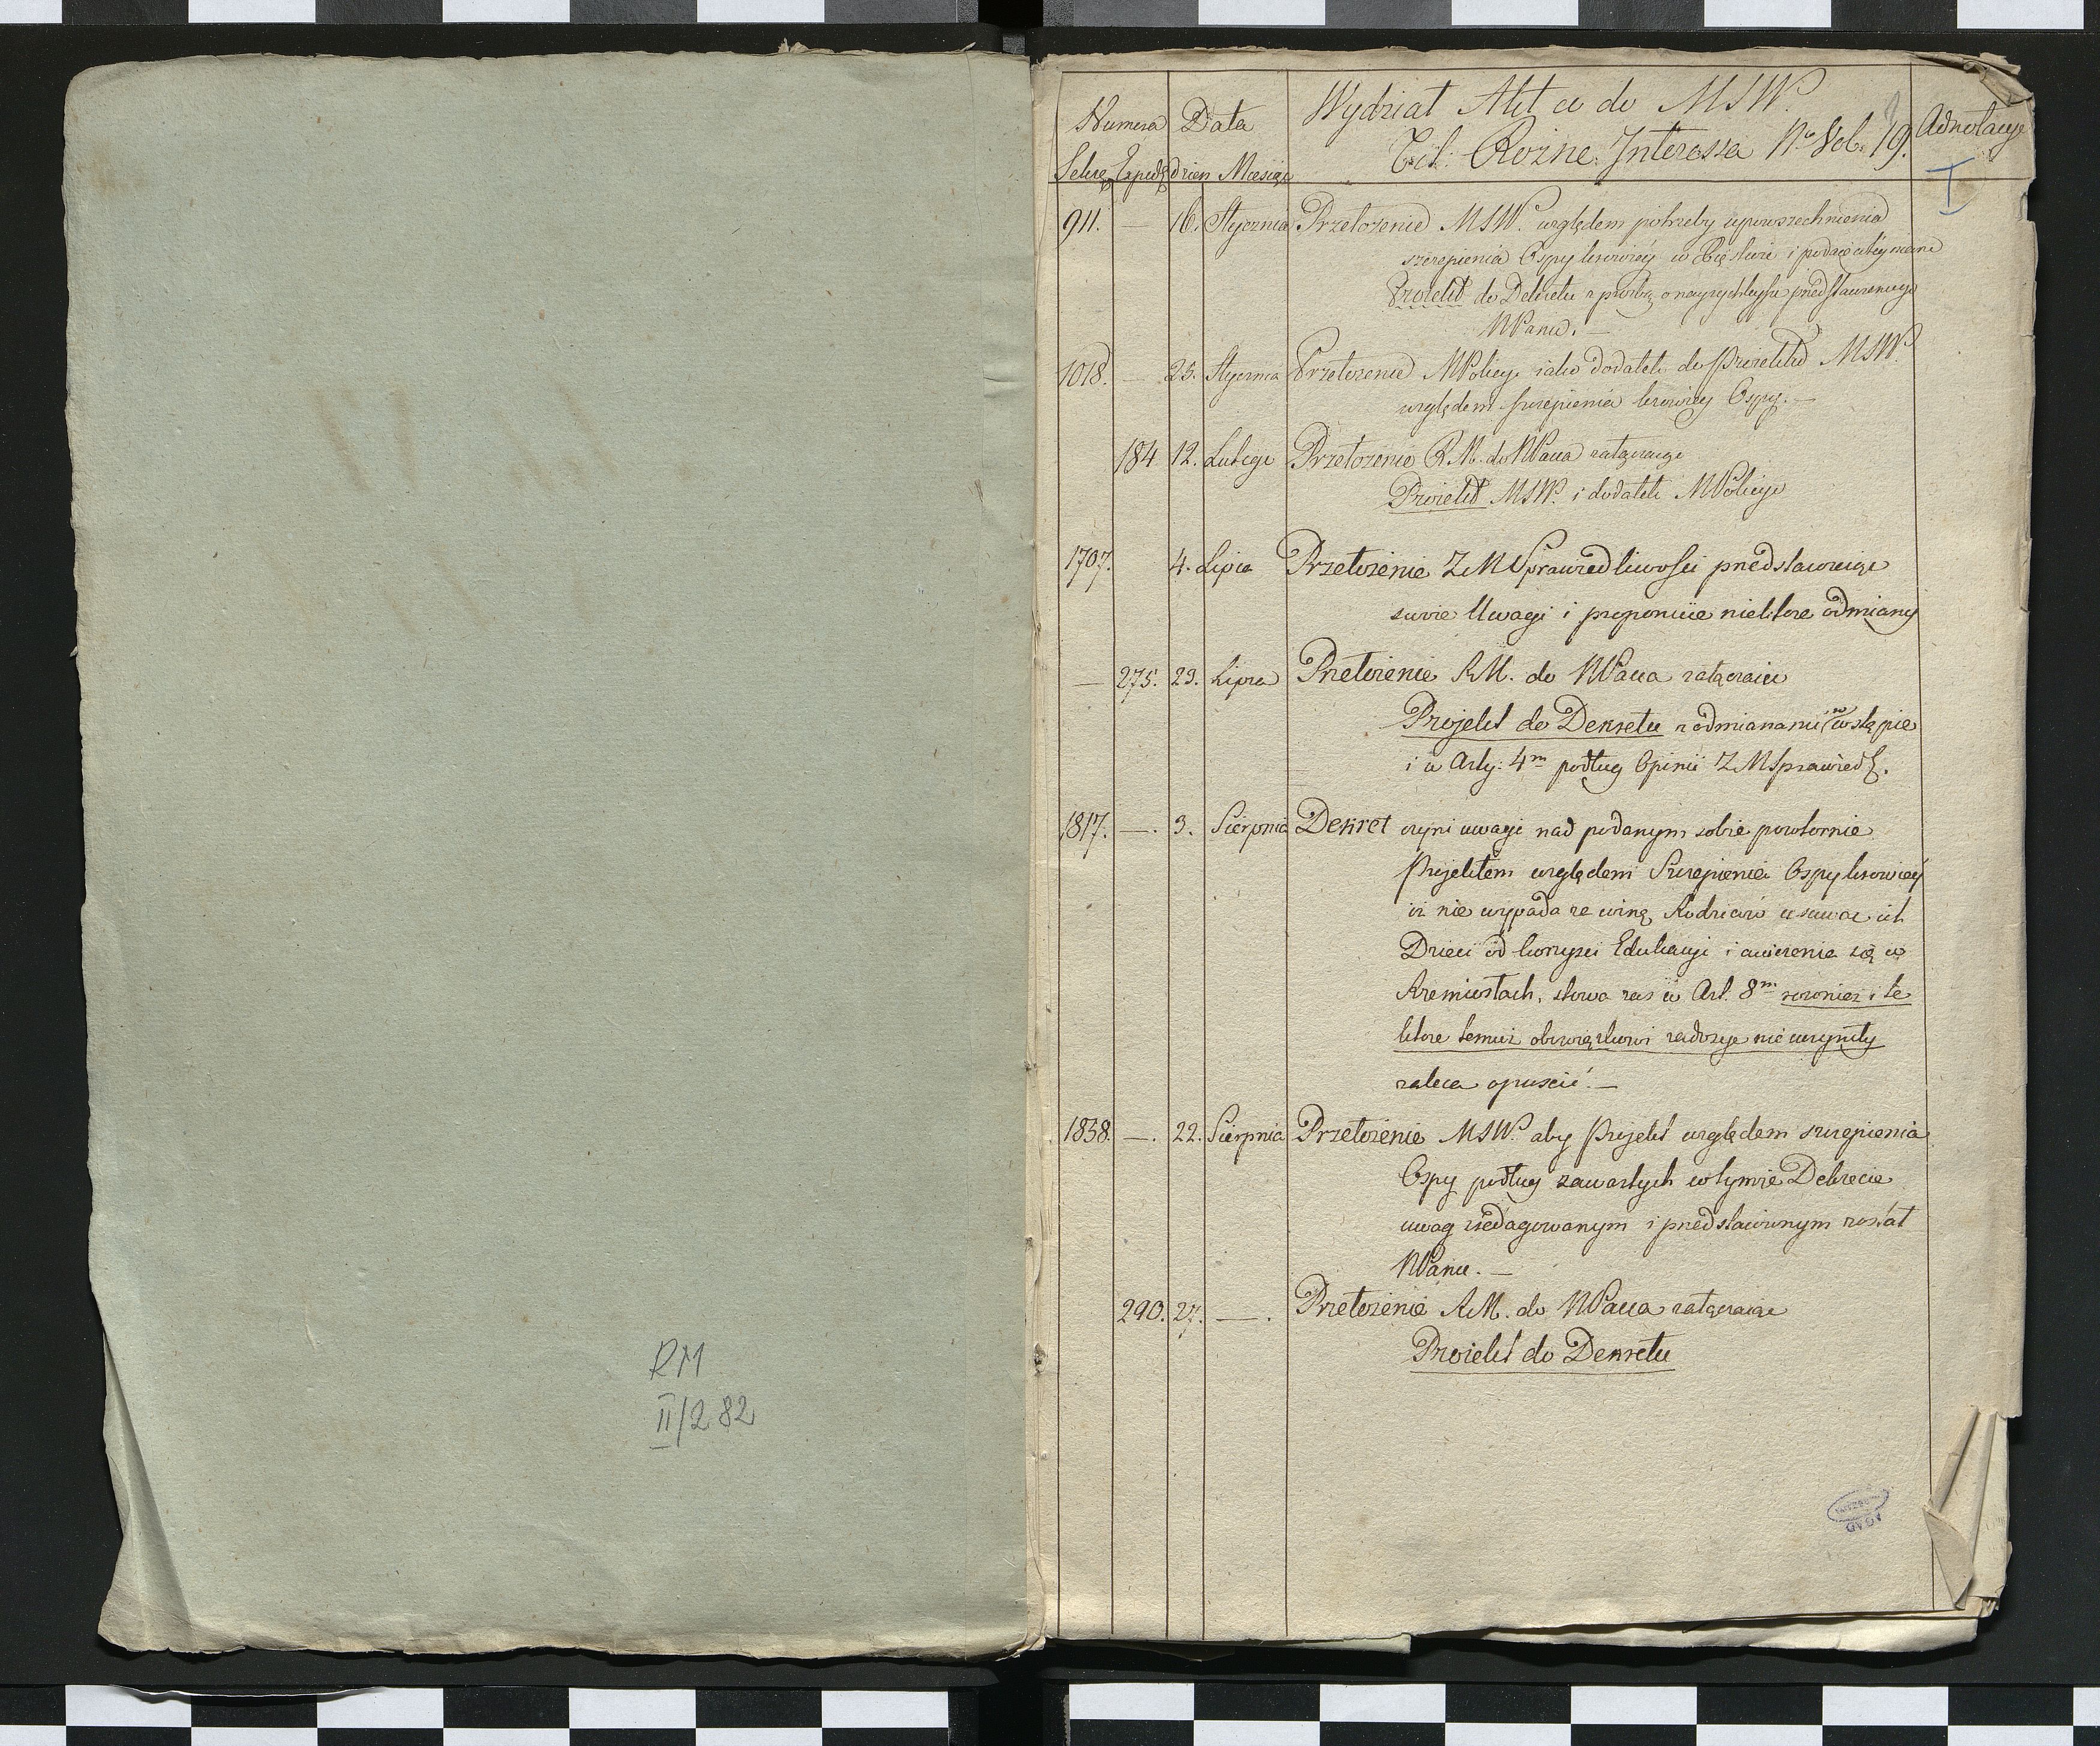 RM
II/282
Numera Data Wydział Akt a do MSW. Adnotacye
Tit: Rożne Interessa No Vol. 19.
Sekre. Exped. dzien Miesiąc
I
911. — 16. Stycznia Przełożenie MSW. względem potrzeby upowszechnienia
szczepienia Ospy krowiéy w Xięstwie i podaie
Proiekt do Dekretu z proźbą o nayrychleysze przedstawienie go
NPanu. —
1018. — 25. Stycznia Przełożenie MPolicyi iako dodatek do Proiektu MSW.
względem szczepienia krowiey Ospy. —
184 12. Lutego Przełożenie R.M. do NPana załączaiące
Proiekt MSW. i dodatek MPolicyi
1707. 4. Lipca Przełożenie ZMSprawiedliwości przedstawuiące
swoie Uwagi i proponuie niektore odmiany
— 275. 29. Lipca Przełożenie RM. do NPana załączaiące
Projekt do Dekretu z odmianami we wstępie
i w Arty: 4m podług Opinii ZMSprawiedl.
1817. —. 3. Sierpnia Dekret czyni uwagi nad podanym sobie powtornie
Projektem względem Szczepienia Ospy krowiéy
iż nie wypada za winę Rodziców usuwać ich
Dzieci od korzyści Edukacyi i ćwiczenia się w
Rzemiosłach, słowa zas w Art. 8m rownież i te
ktore temuż obowiązkowi zadosyć nie uczyniły
zaleca opuscić. —
1838. —. 22. Sierpnia Przełożenie MSW. aby Projekt względem szczepienia
Ospy podług zawartych w tymże Dekrecie
uwag zredagowanym i przedstawionym został
NPanu. —
290. 27. —. Przełożenie RM. do NPana załączaiące
Proiekt do Dekretu
AGAD